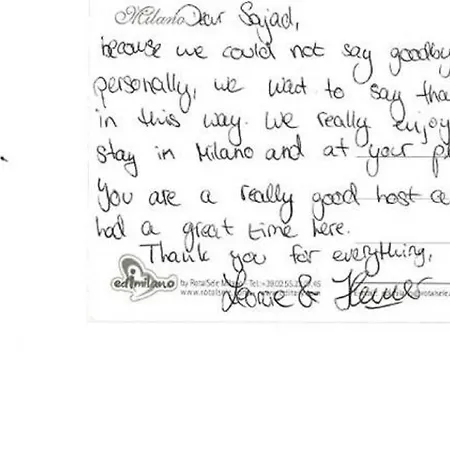 Milano Dear Sajad,
because we could not say goodby
personally, we want to say tha
in this way. We really enjoy
stay in Milano and at your p
You are a really good host a
had a great time here.
Thank you for everything,
edimilano by RotalSele
www.rotalsele
&